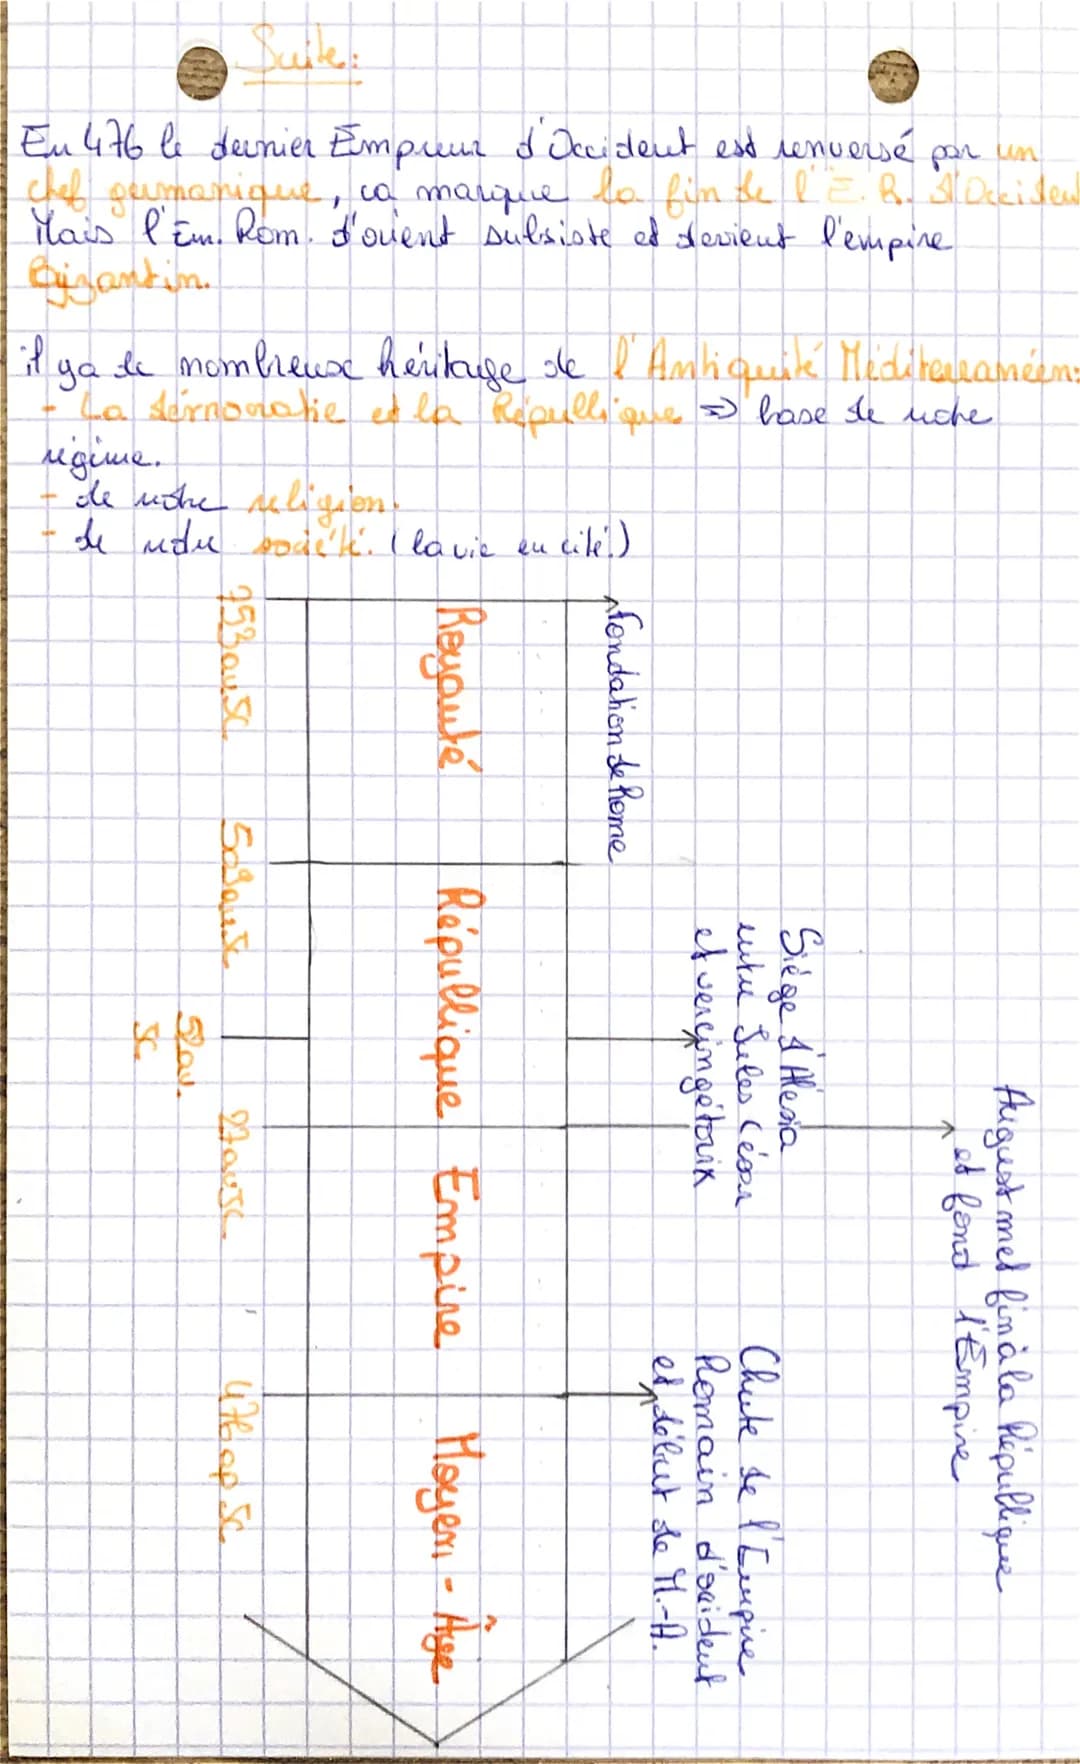 Suite:
En 476 le dernier Empreur d'Occident est renversé par un
chef germanique, ca marque la fin de l'E. R. d'Occident
Mais l'Em. Rom. d'orient subsiste et devient l'empire
Byzantin.
il ya de nombreuse héritage de l'Antiquité Méditerranéen:
- La démocratie et la République => base de notre
régime.
- de notre religion.
- de notre société. (la vie en cité.)
Fondation de Rome
Siège d'Alésia
entre Jules César
et vercingétorix
August met fin à la République
et fond l'Empire
Chute de l'Empire
Romain d'occident
et début de M.-A.
Royauté République Empire Moyen-Âge
753 av JC 509 av JC 52 av.
JC 27 av JC 476 ap JC